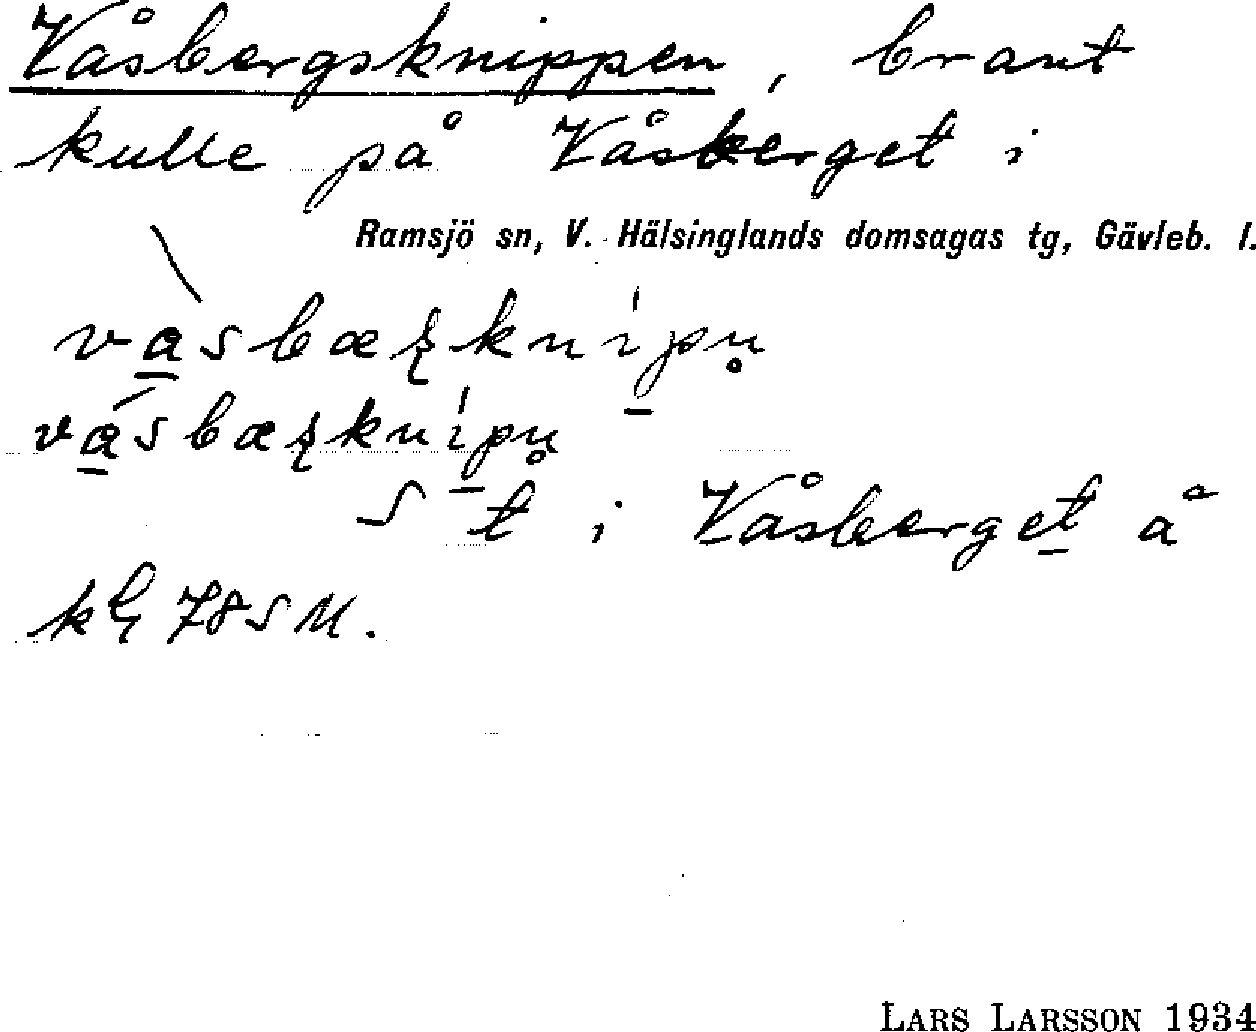 Våsbergsknippen, brant
kulle på Våsberget i
Ramsjö sn, V. Hälsinglands domsagas tg, Gävleb. l.
S t i Våsberget å
kbl 78 SM.
LARS LARSSON 1934